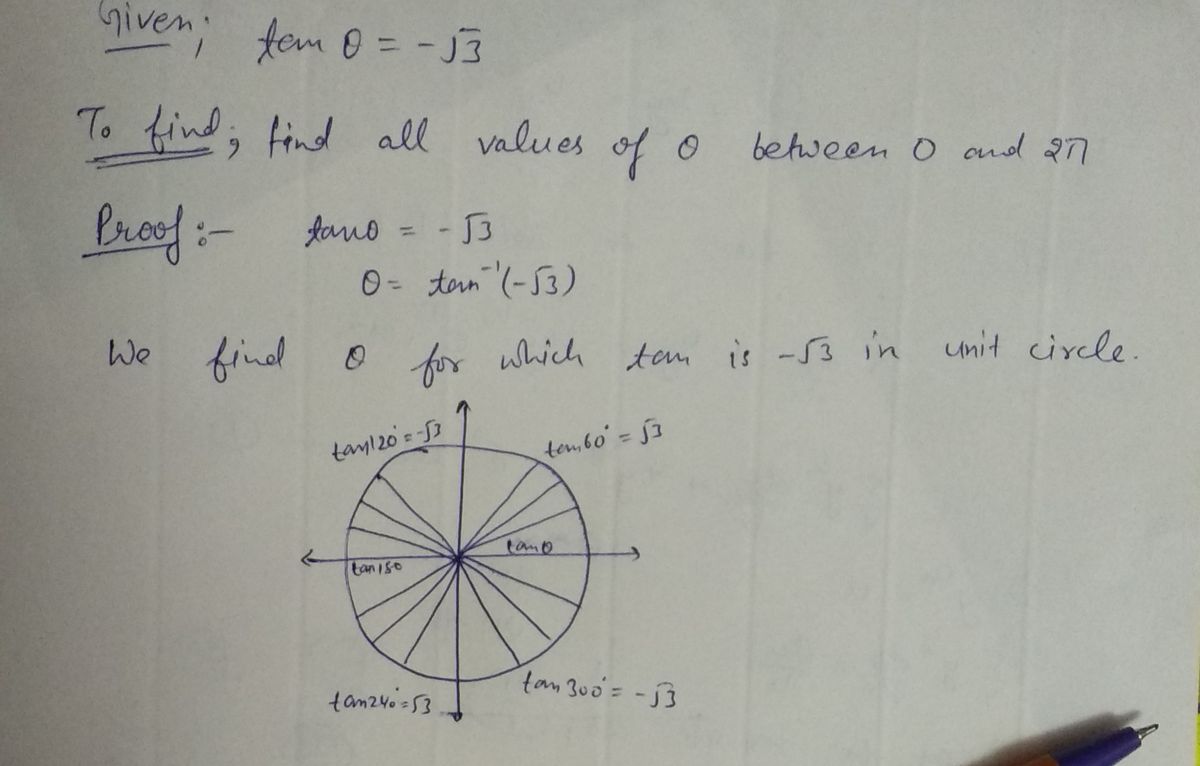 Given; tan θ = -√3
To find; find all values of θ between 0 and 2π
Proof :- tanθ = -√3
θ = tan⁻¹(-√3)
We find θ for which tan is -√3 in unit circle.
tan120° = -√3
tan60° = √3
tanθ
tan180
tan240° = √3
tan300° = -√3